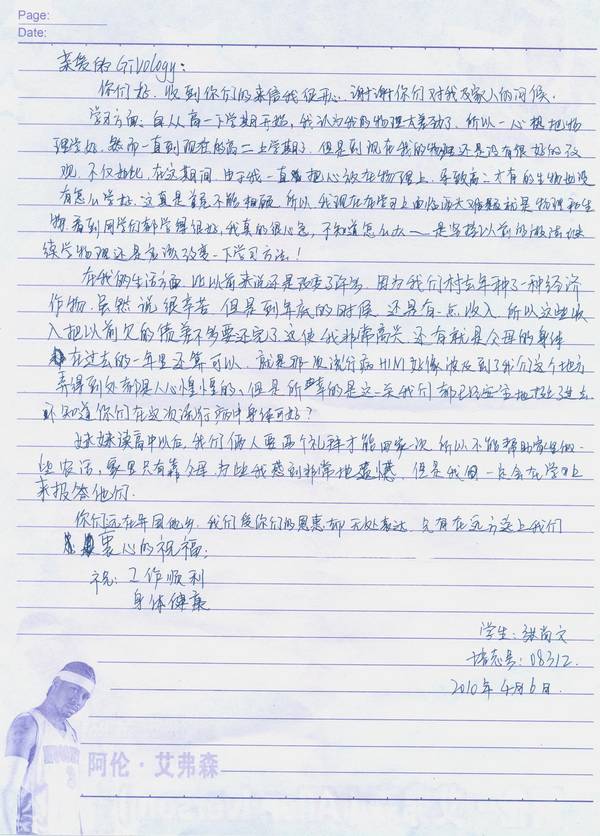 Page:
Date:
亲爱的Givology:
你们好,收到你们的来信我很开心,谢谢你们对我及家人的问候.
学习方面:自从高一下学期开始,我认为我的物理太差劲了,所以一心想把物
理学好,然而一直到现在的高二上学期了,但是到现在我的物理还是没有很好的改
观,不仅如此,在这期间,由于我一直把心放在物理上,导致高二才有的生物也没
有怎么学好,这真是首尾不能相顾,所以我现在在学习上面临两大难题就是物理和生
物,看到同学们都学得很好,我真的很心急,不知道怎么办——是坚持以前的做法继
续学物理还是应该改变一下学习方法!
在我的生活方面,比以前来说还是改变了许多,因为我们村去年种了一种经济
作物,虽然说很辛苦,但是到年底的时候,还是有一点收入,所以这些收
入把以前欠的债差不多要还完了,这使我非常高兴,还有就是父母的身体
在过去的一年里还算可以,就是那次流行病H1N1好像波及到了我们这个地方
弄得到处都是人心惶惶的,但是所幸的是这一关我们都已经安全地挺了过去
不知道你们在这次流行病中身体可好?
妹妹读高中以后,我们俩人要两个礼拜才能回家一次,所以不能帮助家里做一
些农活,家里只有靠父母,为此我感到非常地遗憾,但是我一定会在学习上
来报答他们.
你们远在异国他乡,我们受你们的恩惠却无处表达,只有在远方送上我们
衷心的祝福:
祝:工作顺利
身体健康
学生:张尚文
档案号:08312.
2010年4月6日.
阿伦·艾弗森